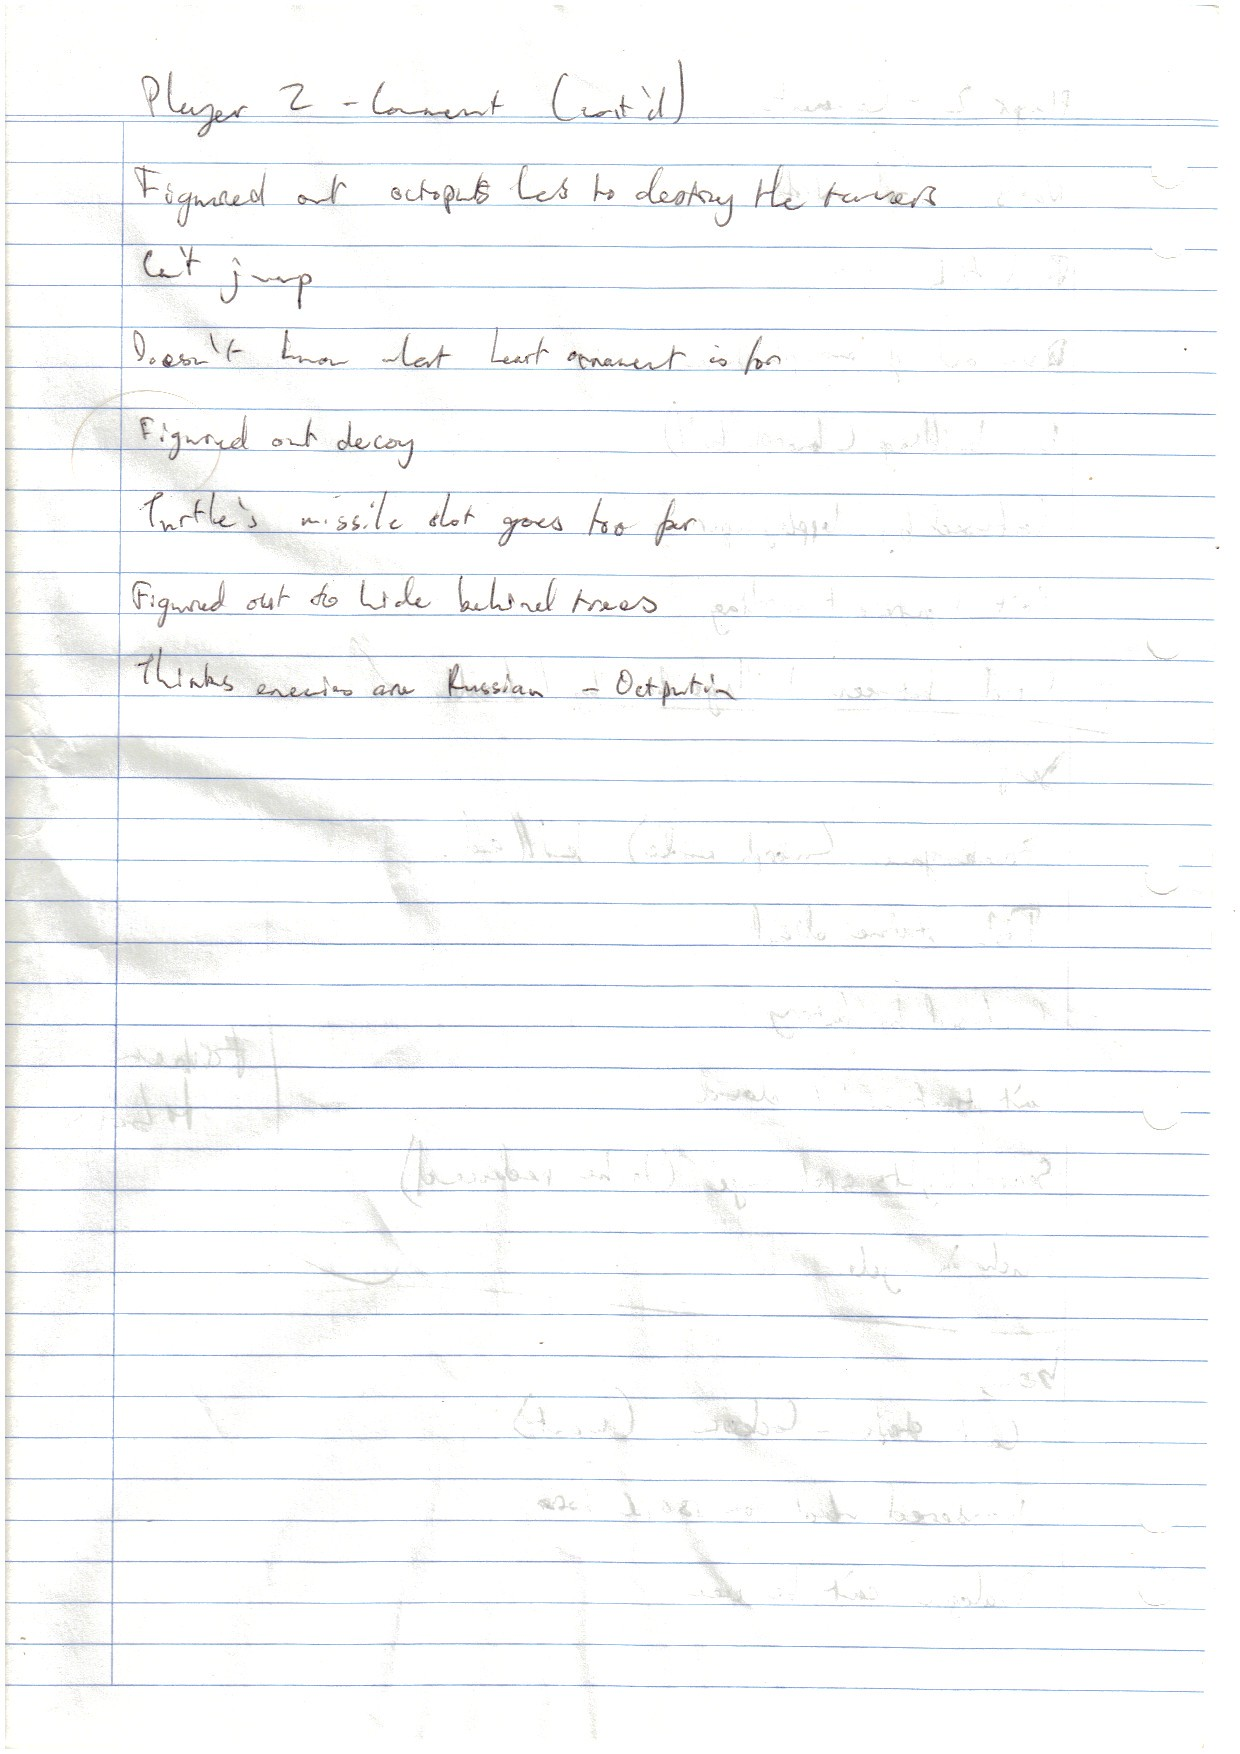 Player 2 - Comment (cont'd)
Figured out octopus has to destroy the towers
Can't jump
Doesn't know what heart ornament is for
Figured out decoy
Turtle's missile shot goes too far
Figured out to hide behind trees
Thinks enemies are Russian - Octputin